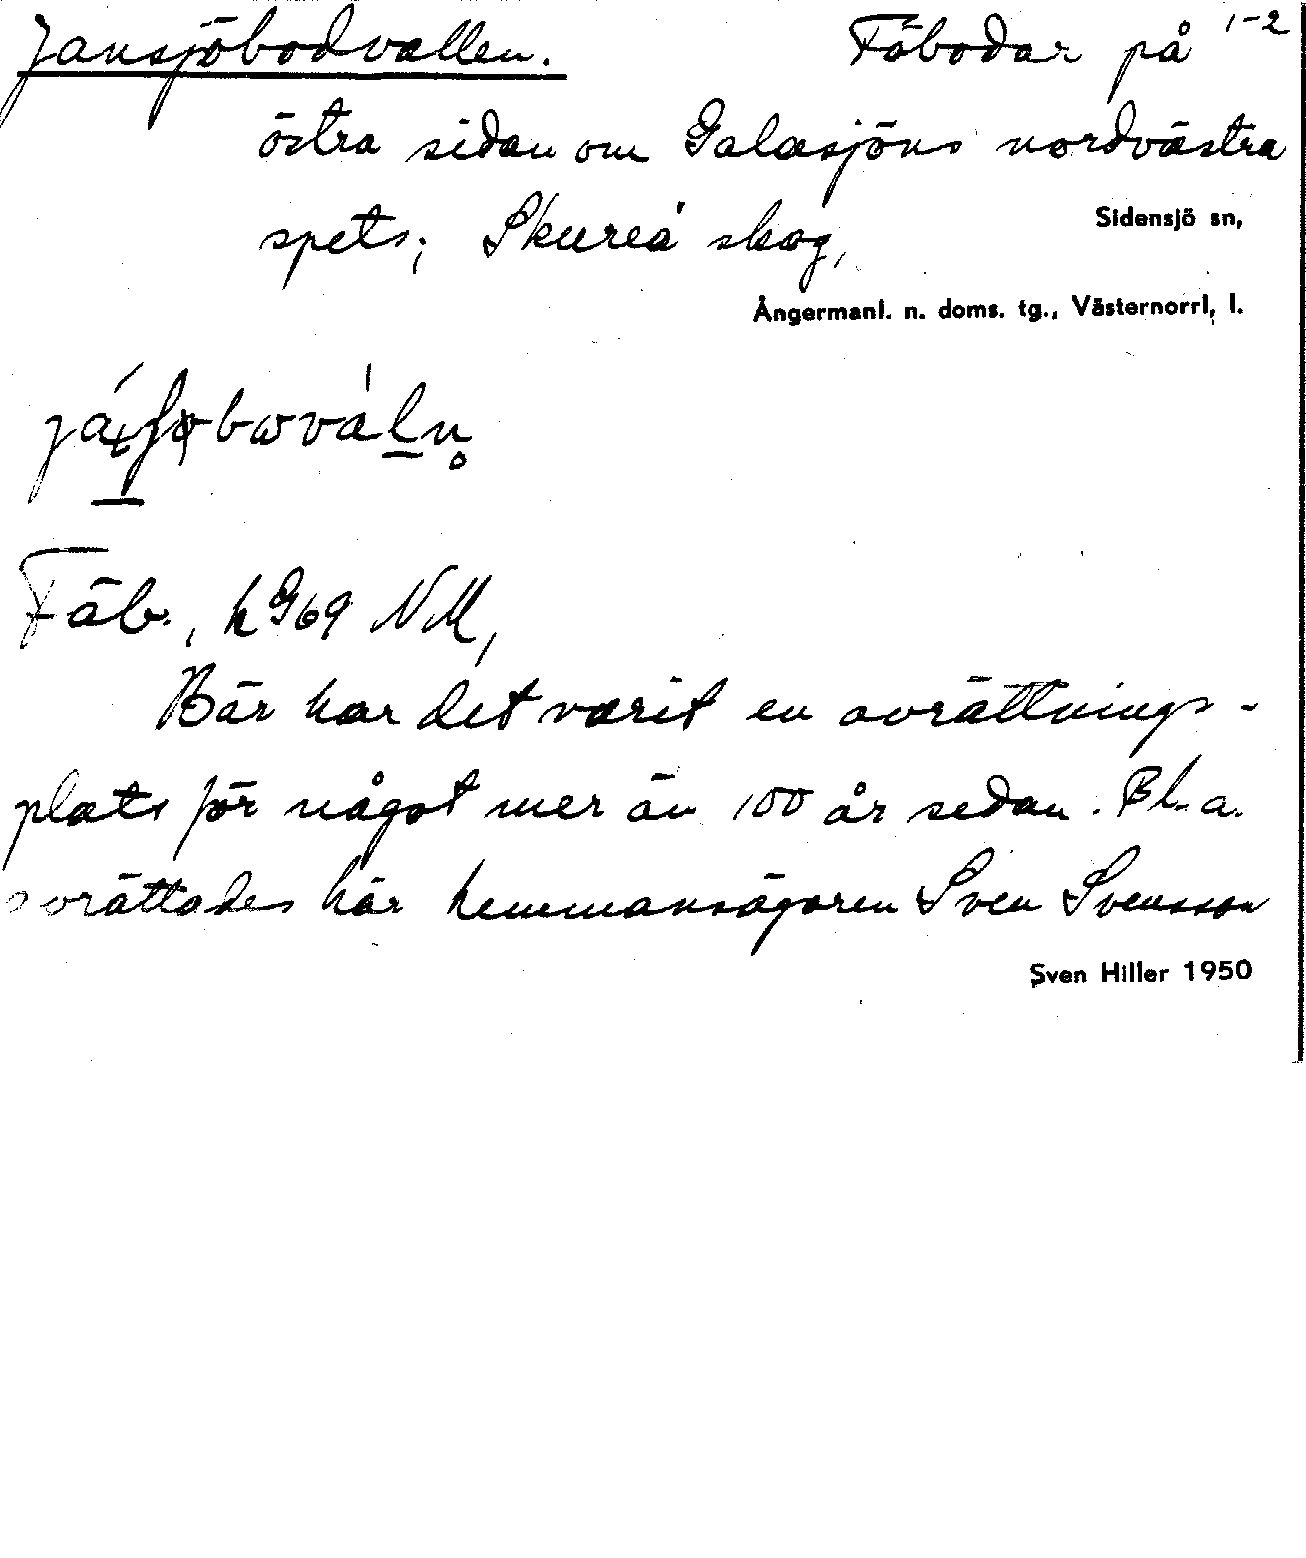 Jansjöbodvallen. Fäbodar på 1-2
östra sidan om Galasjöns nordvästra
spets; Skureå skog,
Sidensjö sn,
Ångermanl. n. doms. tg., Västernorrl, l.
Fäb., h G69 NM,
Här har det varit en avrättnings-
plats för något mer än 100 år sedan. Bl.a.
avrättades här hemmansägaren Sven Svensson
Sven Hiller 1950